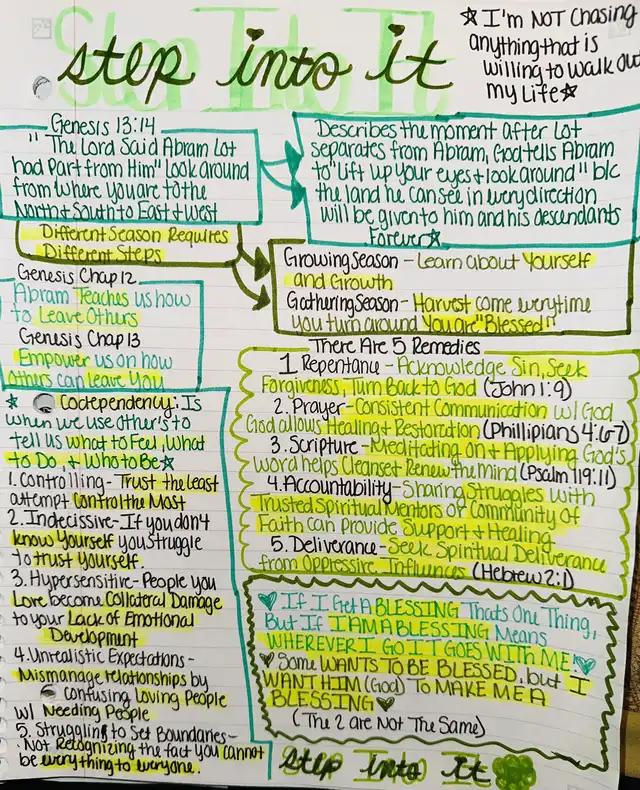 Step Into It
step into it
☆ I'm NOT Chasing
anything that is
willing to walk out
my Life☆
Genesis 13:14
" The Lord Said Abram Lot
had Part from Him" Look around
from Where you are to the
North & South to East & West
Describes the moment after Lot
separates from Abram, God tells Abram
to "Lift up your eyes & look around" b/c
the land he can see in every direction
will be given to him and his descendants
Forever☆
Different Season Requires
Different Steps
Growing Season - Learn about Yourself
and Growth
Gathering Season - Harvest come everytime
you turn around You are "Blessed!"
Genesis Chap 12
Abram Teaches us how
to Leave Others
Genesis Chap 13
Empower us on how
others can leave You
There Are 5 Remedies
1 Repentance - Acknowledge Sin, Seek
Forgiveness, Turn Back to God (John 1:9)
2. Prayer - Consistent Communication w/ God
God allows Healing & Restoration (Phillipians 4:6-7)
3. Scripture - Meditating On & Applying God's
Word helps Cleanse & Renew the Mind (Psalm 119:11)
4. Accountability - Sharing Struggles with
Trusted Spiritual Mentors or Community of
Faith can Provide Support & Healing
5. Deliverance - Seek Spiritual Deliverance
from Oppressive Influences (Hebrew 2:1)
☆ Codependency: Is
when we use other's to
tell us what to Feel, What
to Do, & Who to Be☆
1. Controlling - Trust the least
attempt Control the Most
2. Indecisive - If you don't
know Yourself you struggle
to trust yourself.
3. Hypersensitive - People you
Love become Collateral Damage
to your Lack of Emotional
Development
4. Unrealistic Expectations -
Mismanage relationships by
confusing Loving People
w/ Needing People
5. Struggling to Set Boundaries -
Not Recognizing the fact you cannot
be everything to everyone.
♥ If I Get A BLESSING Thats One Thing,
But If I AM A BLESSING Means
WHEREVER I GO IT GOES WITH ME! ♥
♥ Some WANTS TO BE BLESSED, but I
WANT HIM (God) TO MAKE ME A
BLESSING ♥
(The 2 are Not The Same)
step into it